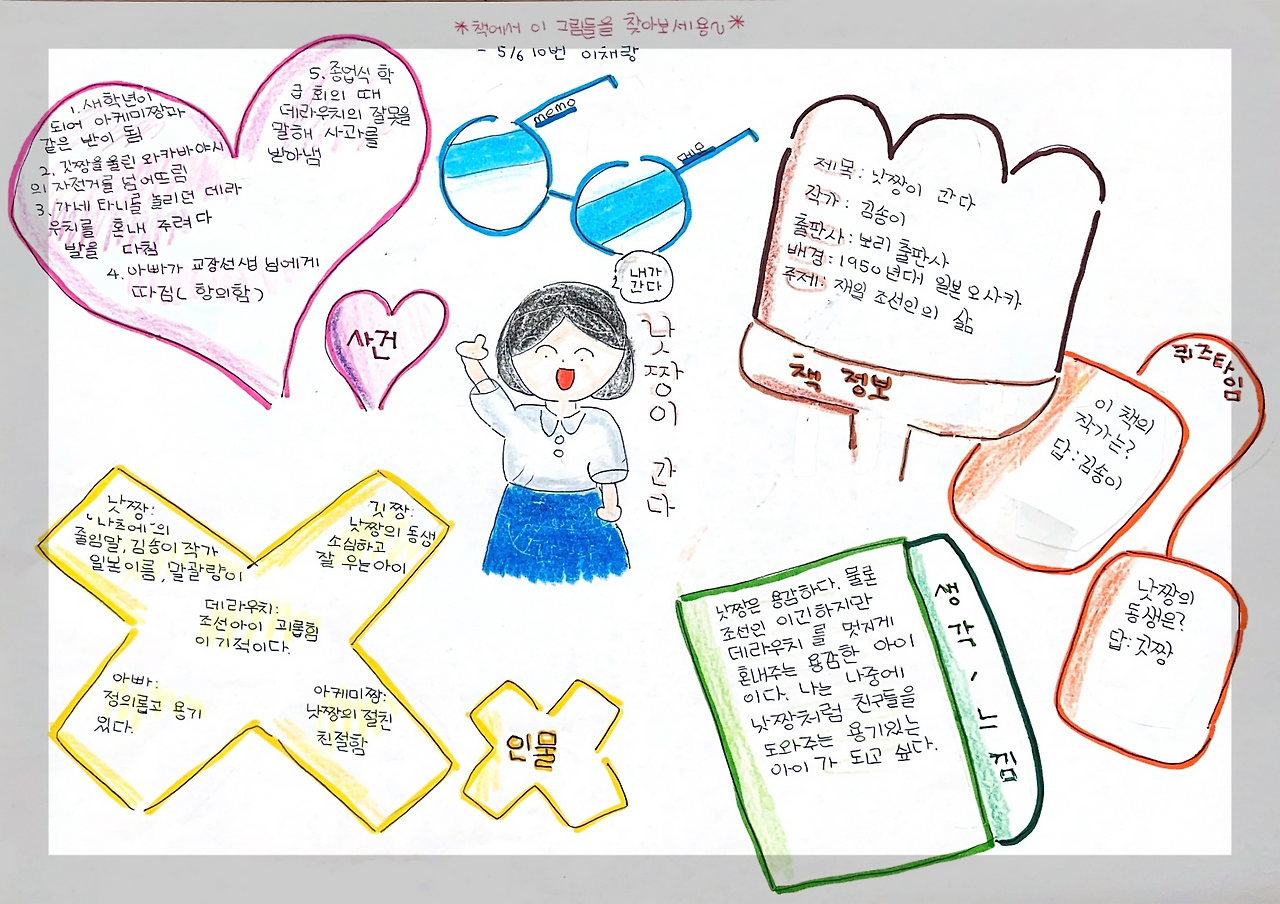 *책에서 이 그림들을 찾아보세용~*
- 5/6 10번 이채랑
1. 새학년이
되어 아케미짱과
같은 반이 됨
2. 깃짱을 울린 와카바야시
의 자전거를 넘어뜨림
3. 가네 타니를 놀리던 데라
우치를 혼내 주려다
발을 다침
4. 아빠가 교장선생 님에게
따짐(항의함)
5. 종업식 학
급 회의 때
데라우치의 잘못을
말해 사과를
받아냄
사건
memo
메모
내가
간다
낫
짱
이
간
다
제목 : 낫짱이 간다
작가 : 김송이
출판사 : 보리 출판사
배경 : 1950년대 일본 오사카
주제 : 재일 조선인의 삶
책 정보
퀴즈타임
이 책의
작가는?
답 : 김송이
낫짱의
동생은?
답 : 깃짱
낫짱:
'나츠에'의
줄임말, 김송이 작가
일본이름, 말괄량이
깃짱:
낫짱의 동생
소심하고
잘 우는아이
데라우치:
조선아이 괴롭힘
이기적이다.
아빠:
정의롭고 용기
있다.
아케미짱:
낫짱의 절친
친절함
인물
낫짱은 용감하다. 물론
조선인 이긴하지만
데라우치 를 멋지게
혼내주는 용감한 아이
이다. 나는 나중에
낫짱처럼 친구들을
도와주는 용기있는
아이 가 되고 싶다.
생
각
,
느
낌